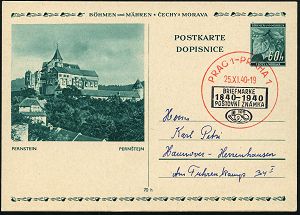 BÖHMEN UND MÄHREN • ČECHY A MORAVA
POSTKARTE
DOPISNICE
60h
PRAG 1-PRAHA 1
25.XI.40-19
BRIEFMARKE
1840-1940
POŠTOVNÍ ZNÁMKA
PERNSTEIN
PERNŠTEJN
Herrn
Karl
Hannover - Herrenhausen
Am
70 h